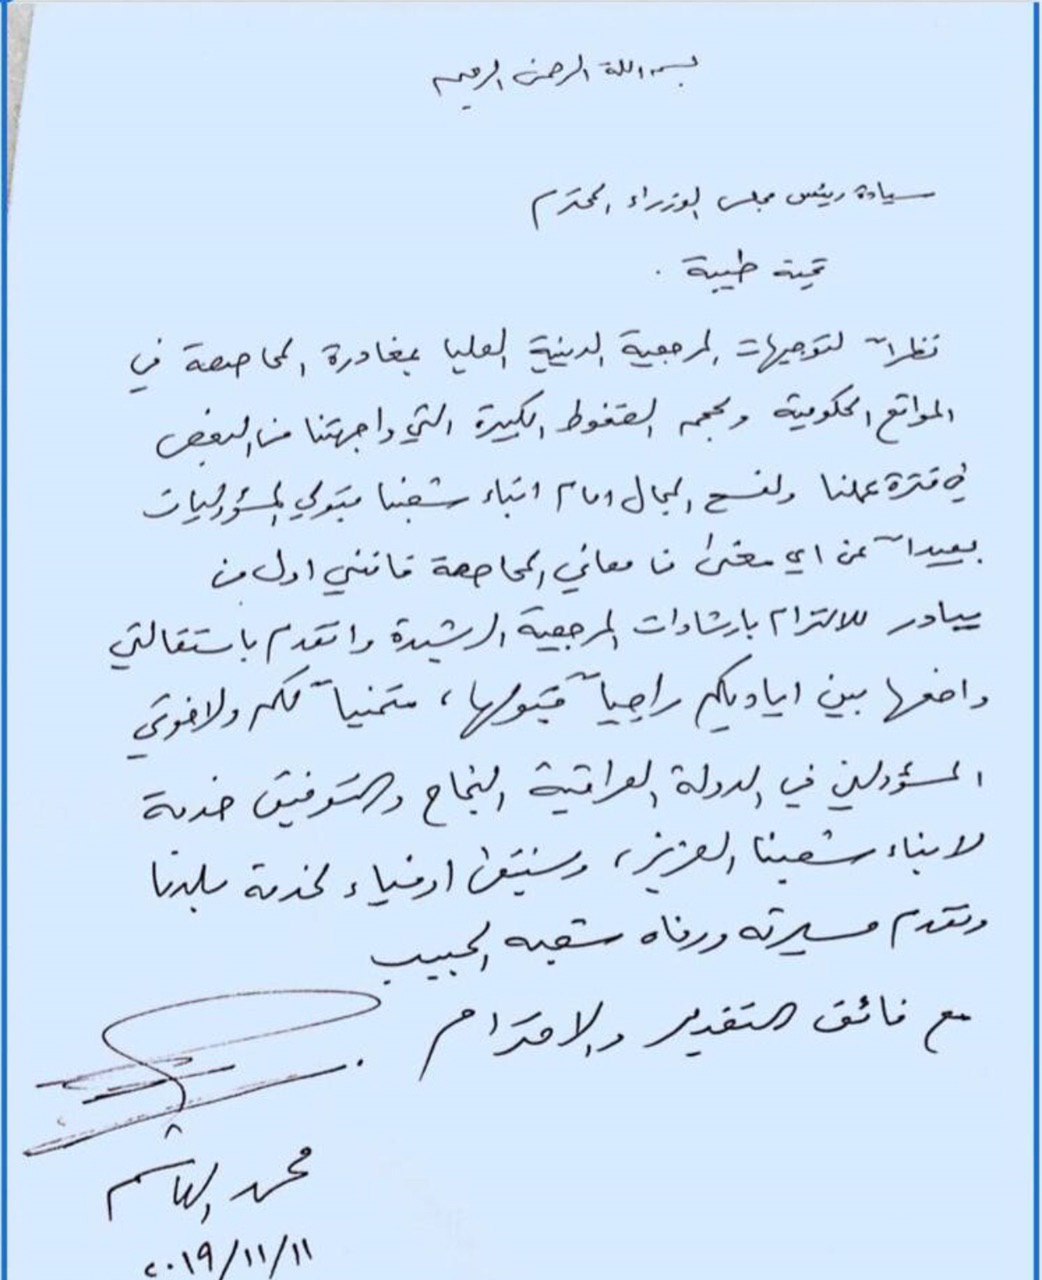 بسم الله الرحمن الرحيم
سيادة رئيس مجلس الوزراء المحترم
تحية طيبة .
نظراً لتوجيهات المرجعية الدينية العليا بمغادرة المحاصصة في
المواقع الحكومية ولحجم الضغوط الكبيرة التي واجهتنا من البعض
في فترة عملنا ولفسح المجال امام ابناء شعبنا بتولي المسؤوليات
بعيداً عن اي معنى من معاني المحاصصة فانني اول من
يبادر للالتزام بارشادات المرجعية الرشيدة واتقدم باستقالتي
واضعها بين اياديكم راجياً قبولها ، متمنياً لكم ولاخوتي
المسؤولين في الدولة العراقية النجاح والتوفيق خدمة
لابناء شعبنا العزيز ، وسنبقى اوفياء لخدمة بلدنا
وتقدم مسيرته ورفاه شعبه الحبيب
مع فائق التقدير والاحترام .
محمد الهاشم
٢٠١٩/١١/١١